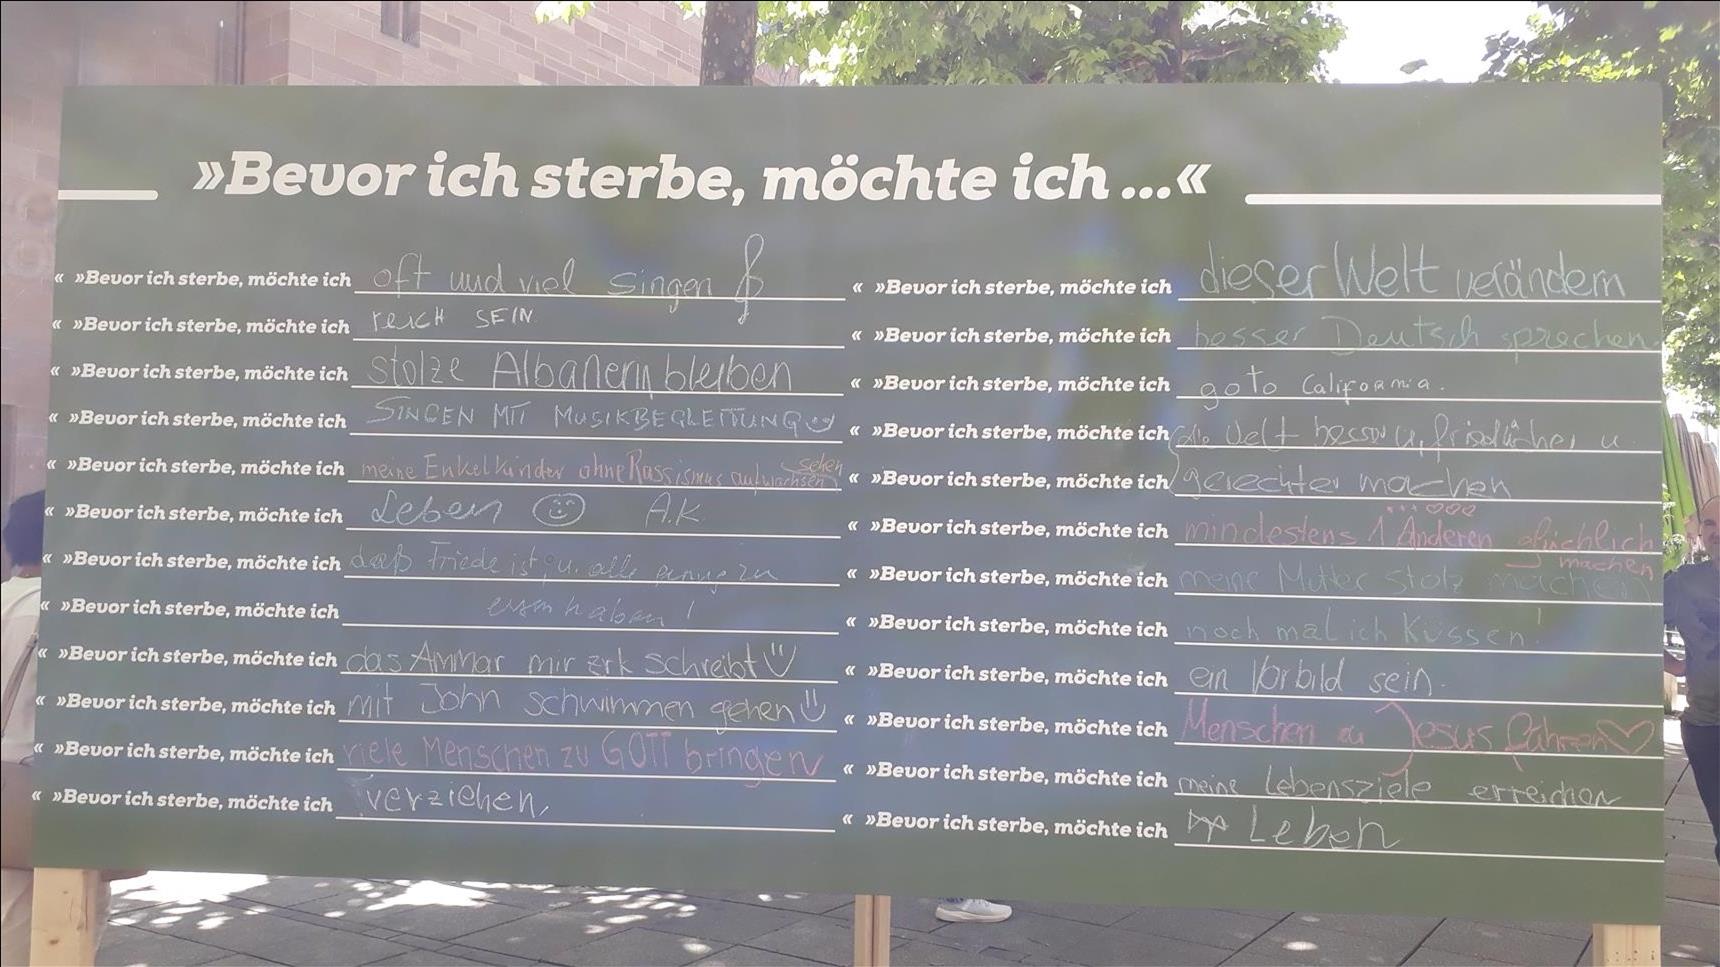 »Bevor ich sterbe, möchte ich ...«
« »Bevor ich sterbe, möchte ich oft und viel singen
« »Bevor ich sterbe, möchte ich reich SEIN
« »Bevor ich sterbe, möchte ich stolze Albanerin bleiben
« »Bevor ich sterbe, möchte ich SINGEN MIT MUSIKBEGLEITUNG
« »Bevor ich sterbe, möchte ich meine Enkelkinder ohne Rassismus aufwachsen sehen
« »Bevor ich sterbe, möchte ich Leben A.K.
« »Bevor ich sterbe, möchte ich daß Friede ist u. alle genug zu
« »Bevor ich sterbe, möchte ich essen haben!
« »Bevor ich sterbe, möchte ich das Ammar mir zrk schreibt
« »Bevor ich sterbe, möchte ich mit John schwimmen gehen
« »Bevor ich sterbe, möchte ich viele Menschen zu GOTT bringen
« »Bevor ich sterbe, möchte ich verziehen,
« »Bevor ich sterbe, möchte ich dieser Welt verändern
« »Bevor ich sterbe, möchte ich besser Deutsch sprechen
« »Bevor ich sterbe, möchte ich go to California.
« »Bevor ich sterbe, möchte ich die Welt besser u. friedlicher u.
« »Bevor ich sterbe, möchte ich gerechter machen
« »Bevor ich sterbe, möchte ich mindestens 1 Anderen glücklich machen
« »Bevor ich sterbe, möchte ich meine Mutter stolz machen
« »Bevor ich sterbe, möchte ich noch mal ich Küssen!
« »Bevor ich sterbe, möchte ich ein Vorbild sein.
« »Bevor ich sterbe, möchte ich Menschen zu Jesus führen
« »Bevor ich sterbe, möchte ich meine Lebensziele erreichen
« »Bevor ich sterbe, möchte ich Leben